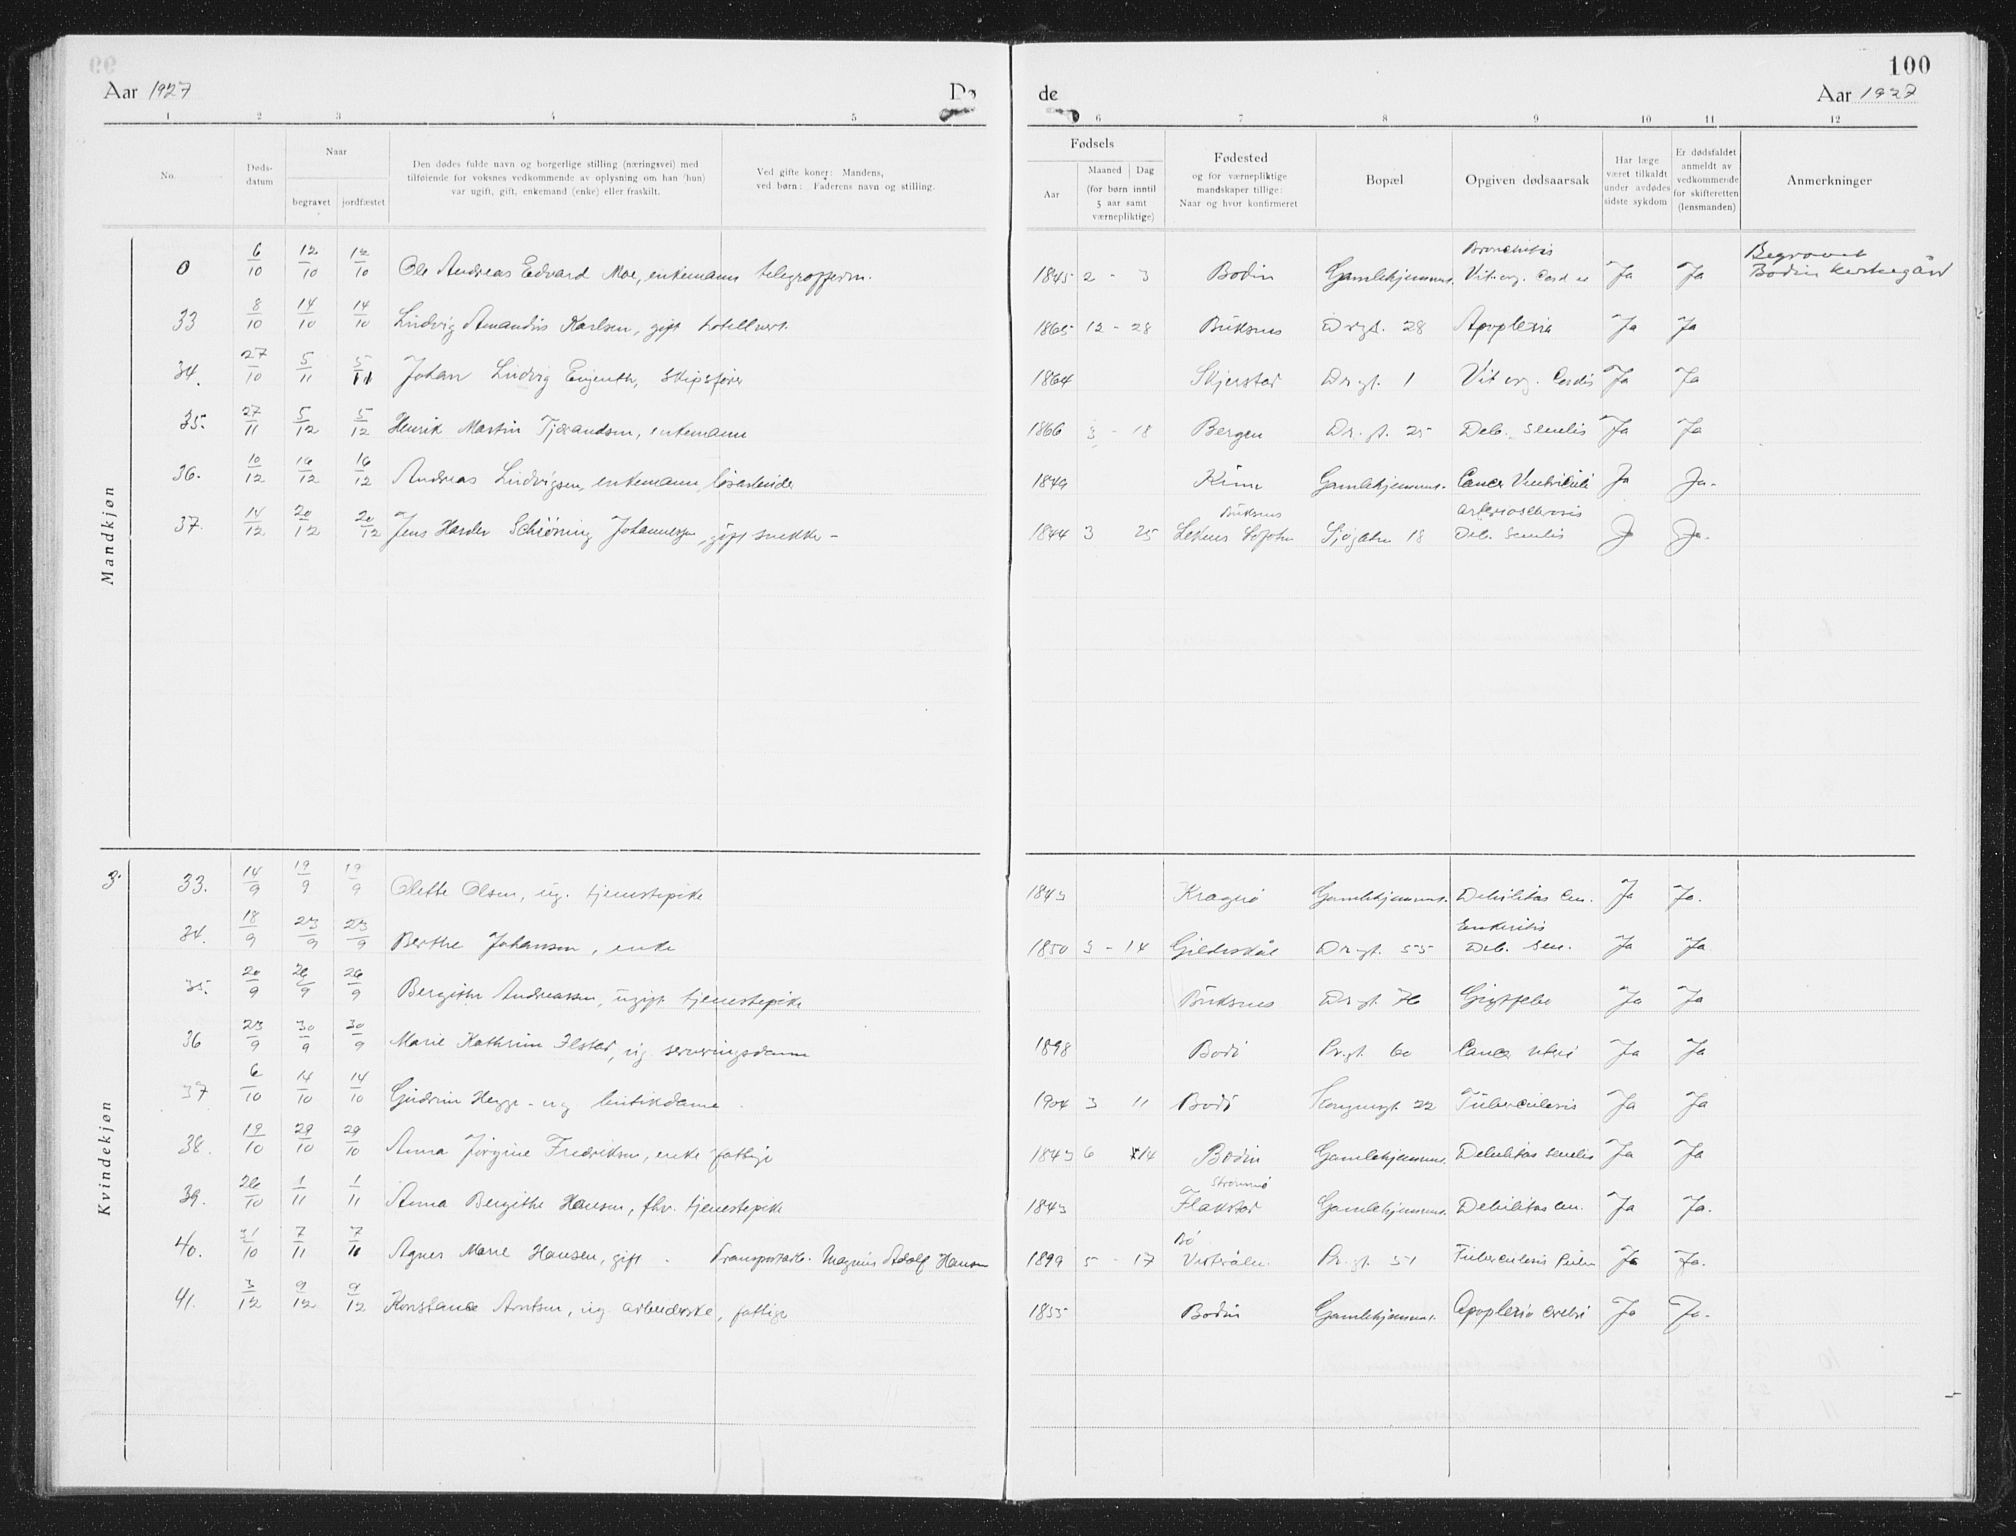 99
100
Aar 1927 Dø
de Aar 1927
1 2 3 4 5
6 7 8 9 10 11 12
No.
Døds-
datum
Naar
begravet jordfæstet
Den dødes fulde navn og borgerlige stilling (næringsvei) med
tilføiende for voksnes vedkommende av oplysning om han (hun)
var ugift, gift, enkemand (enke) eller fraskilt.
Ved gifte koner: Mandens,
ved børn: Faderens navn og stilling.
Fødsels
Aar
Maaned Dag
(for børn inntil
5 aar samt
værnepliktige)
Fødested
og for værnepliktige
mandskaper tillige:
Naar og hvor konfirmeret
Bopæl
Opgiven dødsaarsak
Har læge
været tilkaldt
under avdødes
sidste sykdom
Er dødsfaldet
anmeldt av
vedkommende
for skifteretten
(lensmanden)
Anmerkninger
Mandkjøn
0 6/10 12/10 12/10 Ole Andreas Edvard Moe, enkemann 1845 2 - 3 Bodin Gamlehjemmet. Bronchitis Vit. org. Cord Ja Ja Begravet Bodin kirkegård
33 8/10 14/10 14/10 Ludvig Amandus Karlsen, gift hotellvert. 1865 12 - 28 Buksnes Drgt. 28 Apoplexia Ja Ja
34. 27/10 5/11 5/11 Johan Ludvig Engenth, Skipsfører 1864 Skjerstad Dr.gt. 1 Vit. org. Cordis Ja Ja
35. 27/11 5/12 5/12 Henrik Martin Tjærandsen, enkemann 1866 3 - 18 Bergen Dr. gt. 25 Deb. senilis Ja Ja
36. 10/12 16/12 16/12 Andreas Ludvigsen, enkemann, løsarbeider 1849 Gamlehjemmet. Cancer Ventriculi Ja Ja.
37. 14/12 20/12 20/12 Jens Harder Schiøning Johannessen, gift snekker - 1844 3 25 Buksnes Leknes Sjøgaten 18 Deb. Senilis Ja Ja.
Kvindekjøn
3.
33. 14/9 19/9 19/9 Olette Olsen, ug. tjenestepike 1843 Kragerø Gamlehjemmet. Debilitas sen. Ja Ja.
34. 18/9 23/9 23/9 Berthe Johansen, enke 1850 3 - 14 Gildeskål Dr.gt. 55 Enteritis Deb. Sen. Ja Ja
35. 20/9 26/9 26/9 Bergithe Andreassen, ugift tjenestepike Buksnes Dr.gt. 76 Gigtfeber Ja Ja
36 23/9 30/9 30/9 Marie Kathrine Ilstad, ug serveringsdame 1898 Bodø Pr.gt. 60 Cancer uteri Ja Ja
37 6/10 14/10 14/10 Gudrun Hegge - ug butikdame. 1904 3 11 Bodø Kongensgt. 22 Tuberculosis Ja Ja
38. 19/10 29/10 29/10 Anna Jørgine Fredriksen, enke fattige 1843 6 14 Bodin Gamlehjemmet. Debilitas senilis Ja Ja
39. 26/10 1/11 1/11 Anna Bergithe Hansen, fhv. tjenestepike 1843 Flakstad Gamlehjemmet. Debilitas sen. Ja Ja.
40. 31/10 7/11 7/11 Agnes Marie Hansen, gift. Transportarb. Magnus Adolf Hansen 1899 5 - 17 Bø Vesterålen. Pr.gt. 51 Tuberculosis Pulm Ja Ja.
41. 3/12 9/12 9/12 Konstance Arntsen, ug. arbeiderske, fattige 1855 Bodin Gamlehjemmet. Apoplexia cerebri Ja Ja.